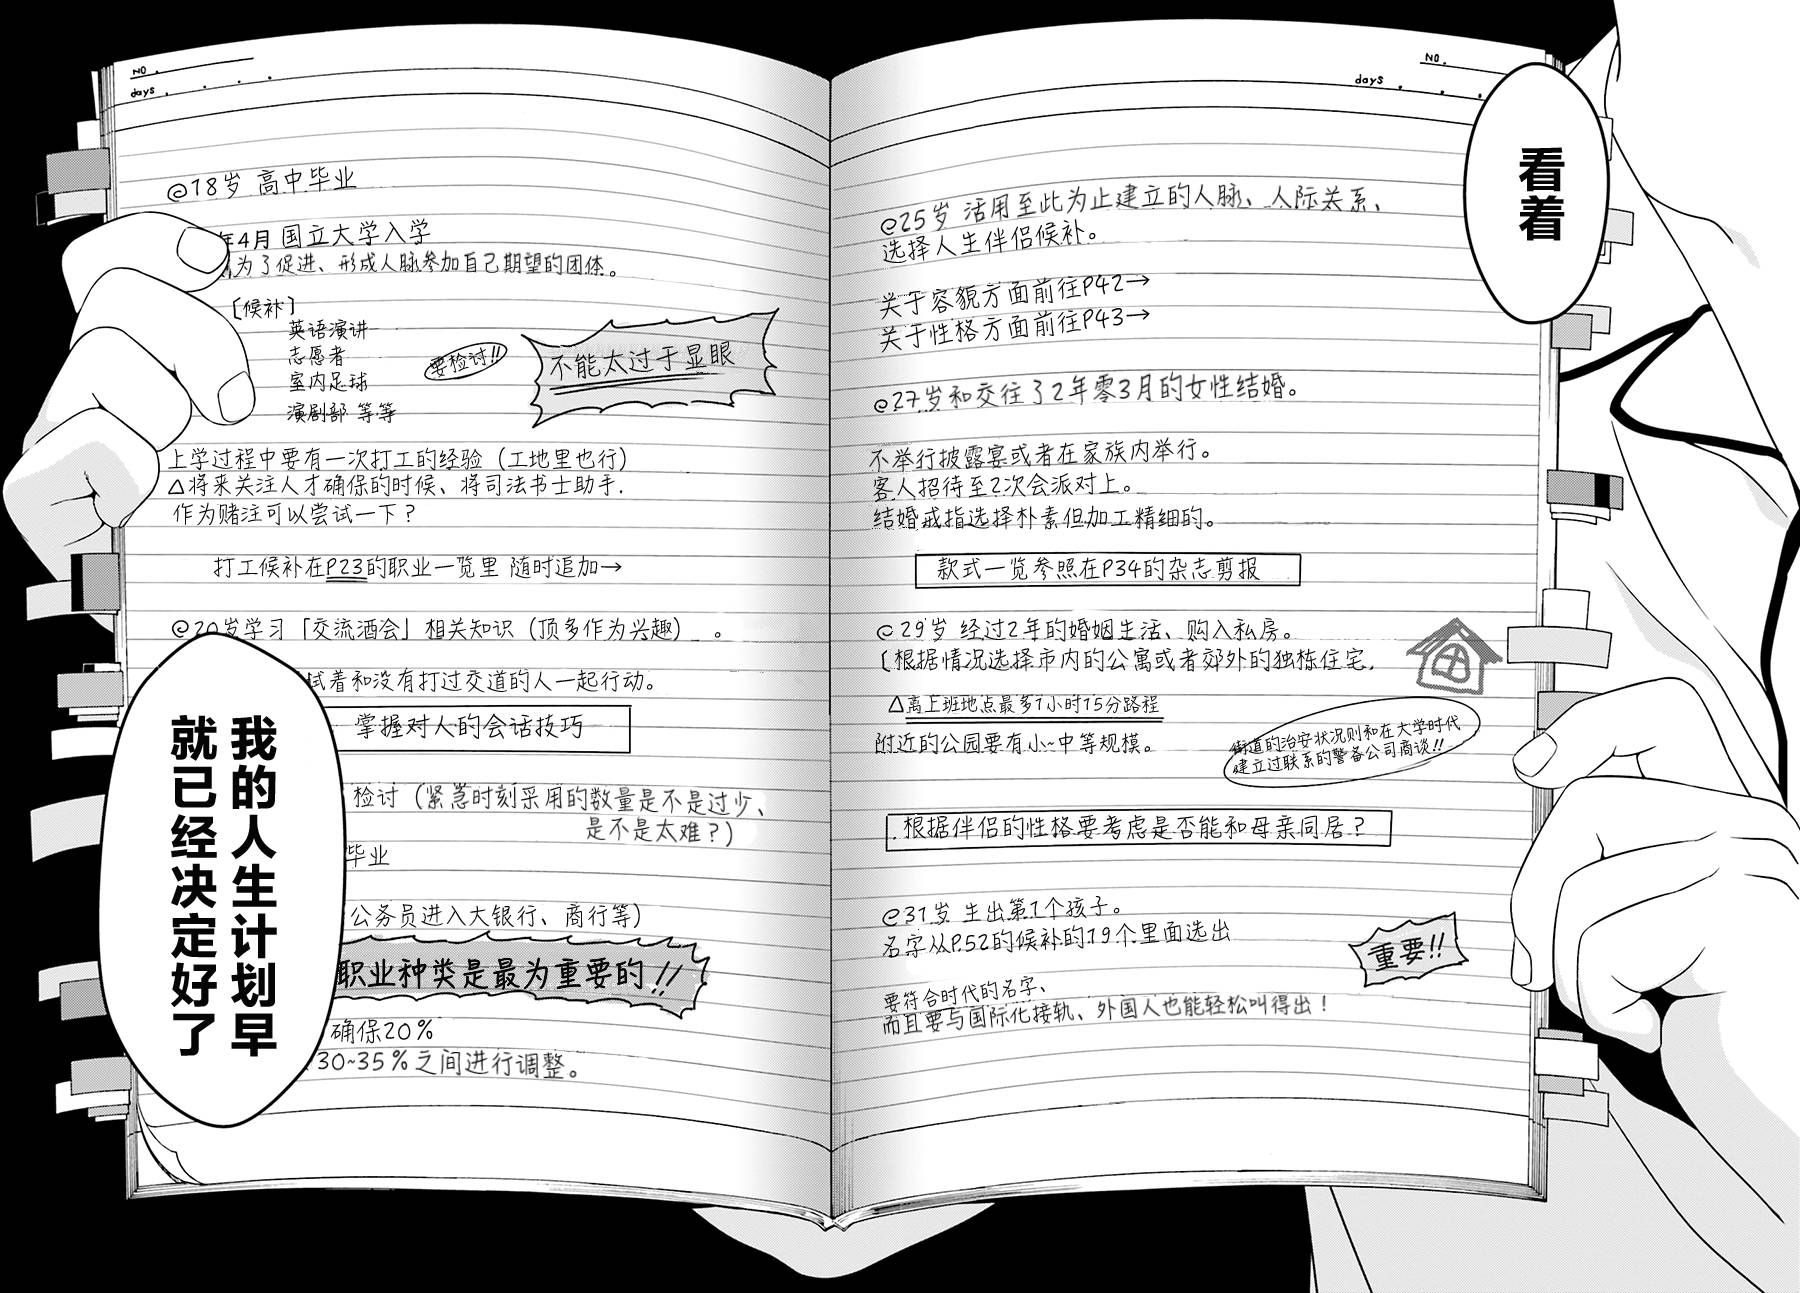 看着
NO.
days
@18岁 高中毕业
年4月 国立大学入学
为了促进、形成人脉参加自己期望的团体。
[候补]
英语演讲
志愿者
室内足球
演剧部 等等
要检讨!!
不能太过于显眼
上学过程中要有一次打工的经验（工地里也行）
△将来关注人才确保的时候、将司法书士助手.
作为赌注可以尝试一下？
打工候补在P23的职业一览里 随时追加→
@20岁学习「交流酒会」相关知识（顶多作为兴趣） 。
试着和没有打过交道的人一起行动。
掌握对人的会话技巧
检讨（紧急时刻采用的数量是不是过少、
是不是太难？)
毕业
公务员进入大银行、商行等)
职业种类是最为重要的!!
确保20%
30~35%之间进行调整。
NO.
days
@25岁 活用至此为止建立的人脉、人际关系、
选择人生伴侣候补。
关于容貌方面前往P42→
关于性格方面前往P43→
@27岁和交往了2年零3月的女性结婚。
不举行披露宴或者在家族内举行。
客人招待至2次会派对上。
结婚戒指选择朴素但加工精细的。
款式一览参照在P34的杂志剪报
@29岁 经过2年的婚姻生活、购入私房。
[根据情况选择市内的公寓或者郊外的独栋住宅.
△离上班地点最多1小时15分路程
附近的公园要有小~中等规模。
街道的治安状况则和在大学时代
建立过联系的警备公司商谈!!
根据伴侣的性格要考虑是否能和母亲同居？
@31岁 生出第1个孩子。
名字从P.52的候补的19个里面选出
重要!!
要符合时代的名字、
而且要与国际化接轨、外国人也能轻松叫得出！
我的人生计划早
就已经决定好了